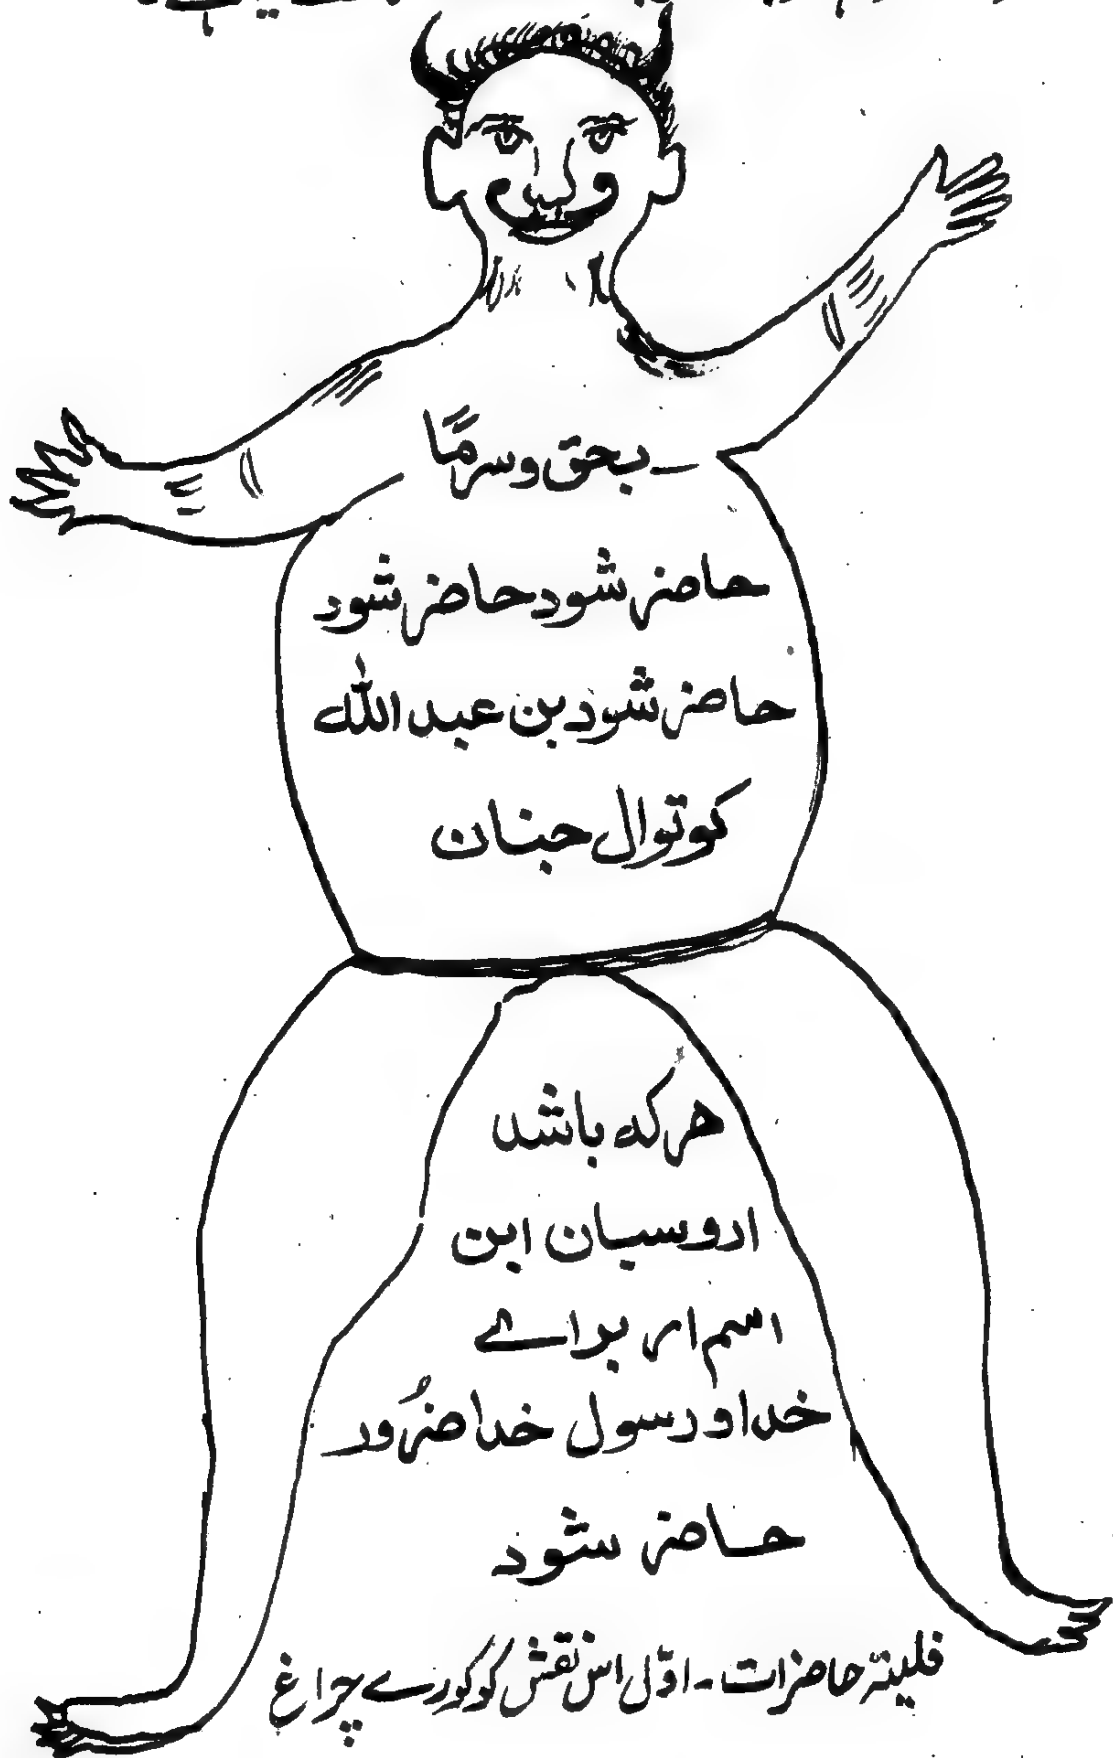 بحق وسرمًا
حاضر شود حاضر شود
حاضر شود بن عبد اللّٰه
کوتوال جنان
هرکه باشد
اروسیان ابن
اسم ام براے
خدا و رسول خدا ضرُور
حاضر شود
فلیتۂ حاضرات - اوّل اس نقش کو کورے چراغ